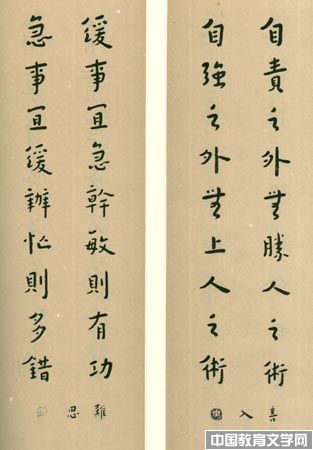 自責之外無勝人之術
自強之外無上人之術
善入
緩事宜急幹敏則有功
急事宜緩辦忙則多錯
難思
中国教育文学网